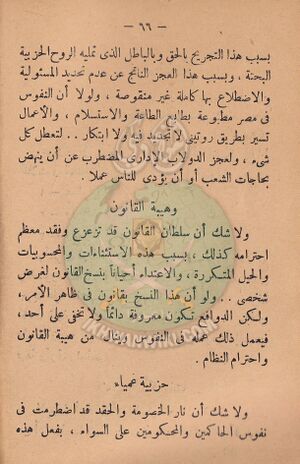 — ٦٦ —
بسبب هذا التجريح بالحق وبالباطل الذى تمليه الروح الحزبية
البحتة ، وبسبب هذا العجز الناتج عن عدم تحديد المسئولية
والاضطلاع بها كاملة غير منقوصة ، ولولا أن النفوس
فى مصر مطبوعة بطابع الطاعة والاستسلام ، والأعمال
تسير بطريق روتينى لا تجديد فيه ولا ابتكار .. لتعطل كل
شىء ، ولعجز الدولاب الإدارى المضطرب عن أن ينهض
بحاجات الشعب أو أن يؤدى للناس عملا .
وهيبة القانون
ولا شك أن سلطان القانون قد تزعزع وفقد معظم
احترامه كذلك ، بسبب هذه الاستثناءات والمحسوبيات
والحيل المتكررة ، والاعتداء أحياناً بنسخ القانون لغرض
شخصى .. ولو أن هذا النسخ بقانون فى ظاهر الأمر،
ولكن الدوافع تكون معروفة دائماً ولا تخفى على أحد ،
فيعمل ذلك عمله فى النفوس وينال من هيبة القانون
واحترام النظام .
حزبية عمياء
ولا شك أن نار الخصومة والحقد قد اضطرمت فى
نفوس الحاكمين والمحكومين على السواء ، بفعل هذه